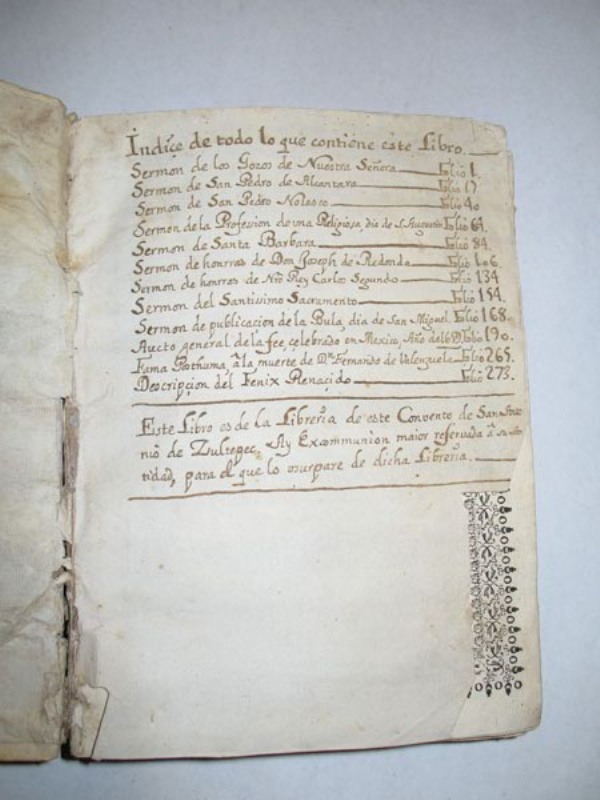 Indiçe de todo lo que contiene este Libro.
Sermon de los Gozos de Nuestra Señora Folio 1.
Sermon de San Pedro de Alcantara Folio 17
Sermon de San Pedro Nolasco Folio 40
Sermon de la Profesion de una Religiosa, dia de S. Augustin Folio 64.
Sermon de Santa Barbara Folio 84.
Sermon de honrras de Don Joseph de Redondo Folio 106.
Sermon de honrras de Nrõ Rey Carlos Segundo Folio 134
Sermon del Santissimo Sacramento Folio 154.
Sermon de publicacion de la Bula, dia de San Miguel. Folio 168.
Aucto general de la fee, celebrado en Mexico, Año de Folio 190.
Fama Posthuma, â la muerte de Dn Fernando de Valenzuela Folio 265.
Descripcion del Fenix Renacido Folio 273.
Este Libro es de la Libreria de este Convento de San
nio de Zultepec. Ay Excommunion maior reservada â su
tidad, para el que lo usurpare de dicha Libreria.